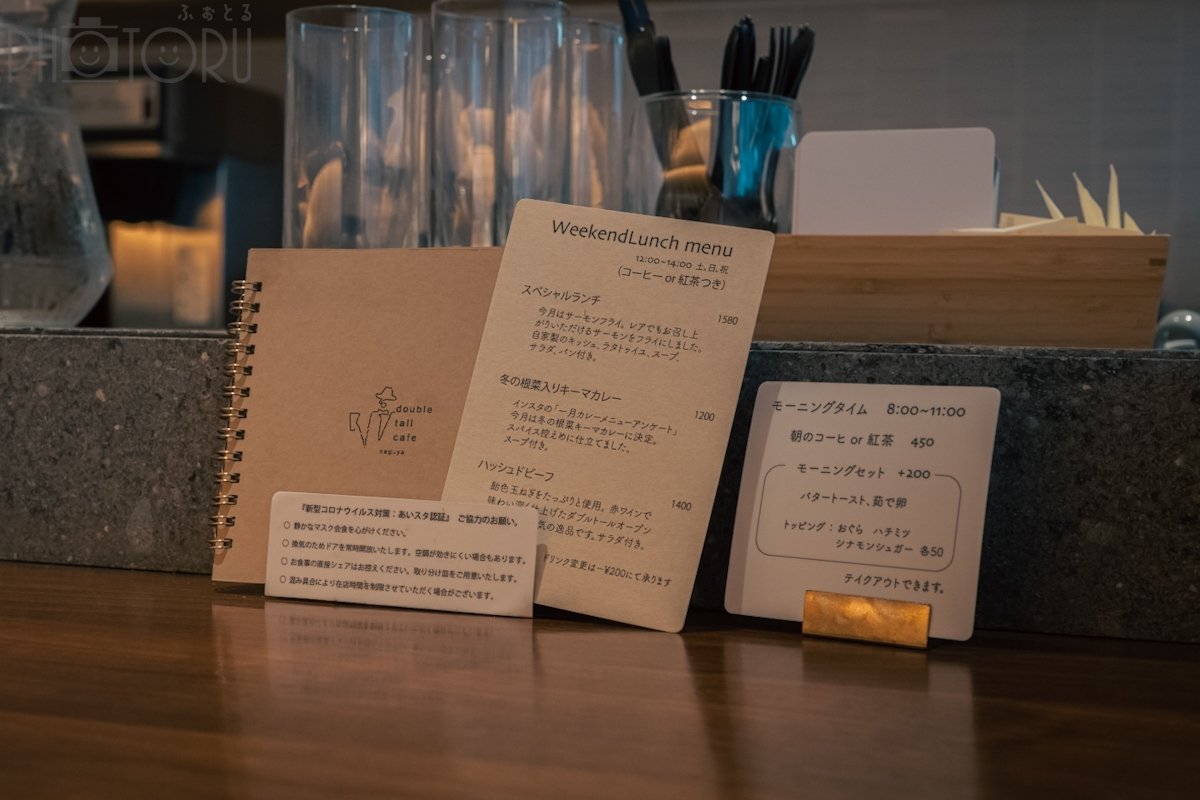 ふぉとる
PHOTORU
double
tall
cafe
nagoya
WeekendLunch menu
12:00~14:00 土、日、祝
(コーヒー or 紅茶つき)
スペシャルランチ
1580
今月はサーモンフライ。レアでもお召し上
がりいただけるサーモンをフライにしました。
自家製のキッシュ、ラタトゥイユ、スープ、
サラダ、パン付き。
冬の根菜入りキーマカレー
1200
インスタの「一月カレーメニューアンケート」
今月は冬の根菜キーマカレーに決定。
スパイス控えめに仕立てました。
スープ付き。
ハッシュドビーフ
1400
飴色玉ねぎをたっぷりと使用。赤ワインで
味わい深く仕上げたダブルトールオープン
気の逸品です。サラダ付き。
ドリンク変更は−¥200にて承ります
『新型コロナウイルス対策:あいスタ認証』 ご協力のお願い。
○ 静かなマスク会食を心がけください。
○ 換気のためドアを常時開放いたします。空調が効きにくい場合もあります。
○ お食事の直接シェアはお控えください。取り分け皿をご用意いたします。
○ 混み具合により在店時間を制限させていただく場合がございます。
モーニングタイム 8:00~11:00
朝のコーヒ or 紅茶 450
モーニングセット +200
バタートースト、茹で卵
トッピング : おぐら ハチミツ
シナモンシュガー 各50
テイクアウトできます。